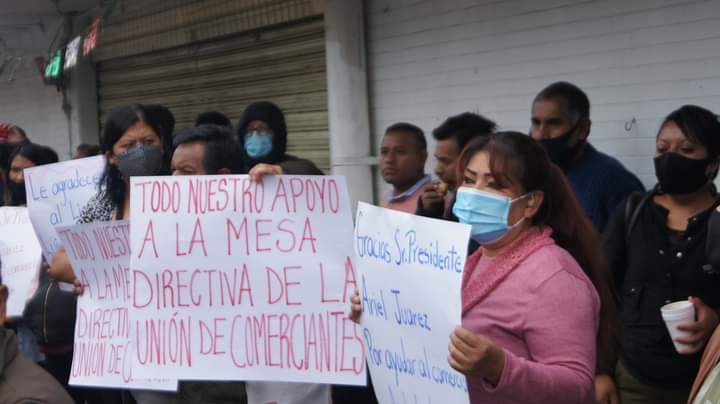 Le agradece
al Li
TODO NUES
A LA ME
DIRECTI
UNIÓN DE
TODO NUESTRO APOYO
A LA MESA
DIRECTIVA DE LA
UNIÓN DE COMERCIANTES
Gracias Sr. Presidente
Ariel Juárez
Por ayudar al
comercio